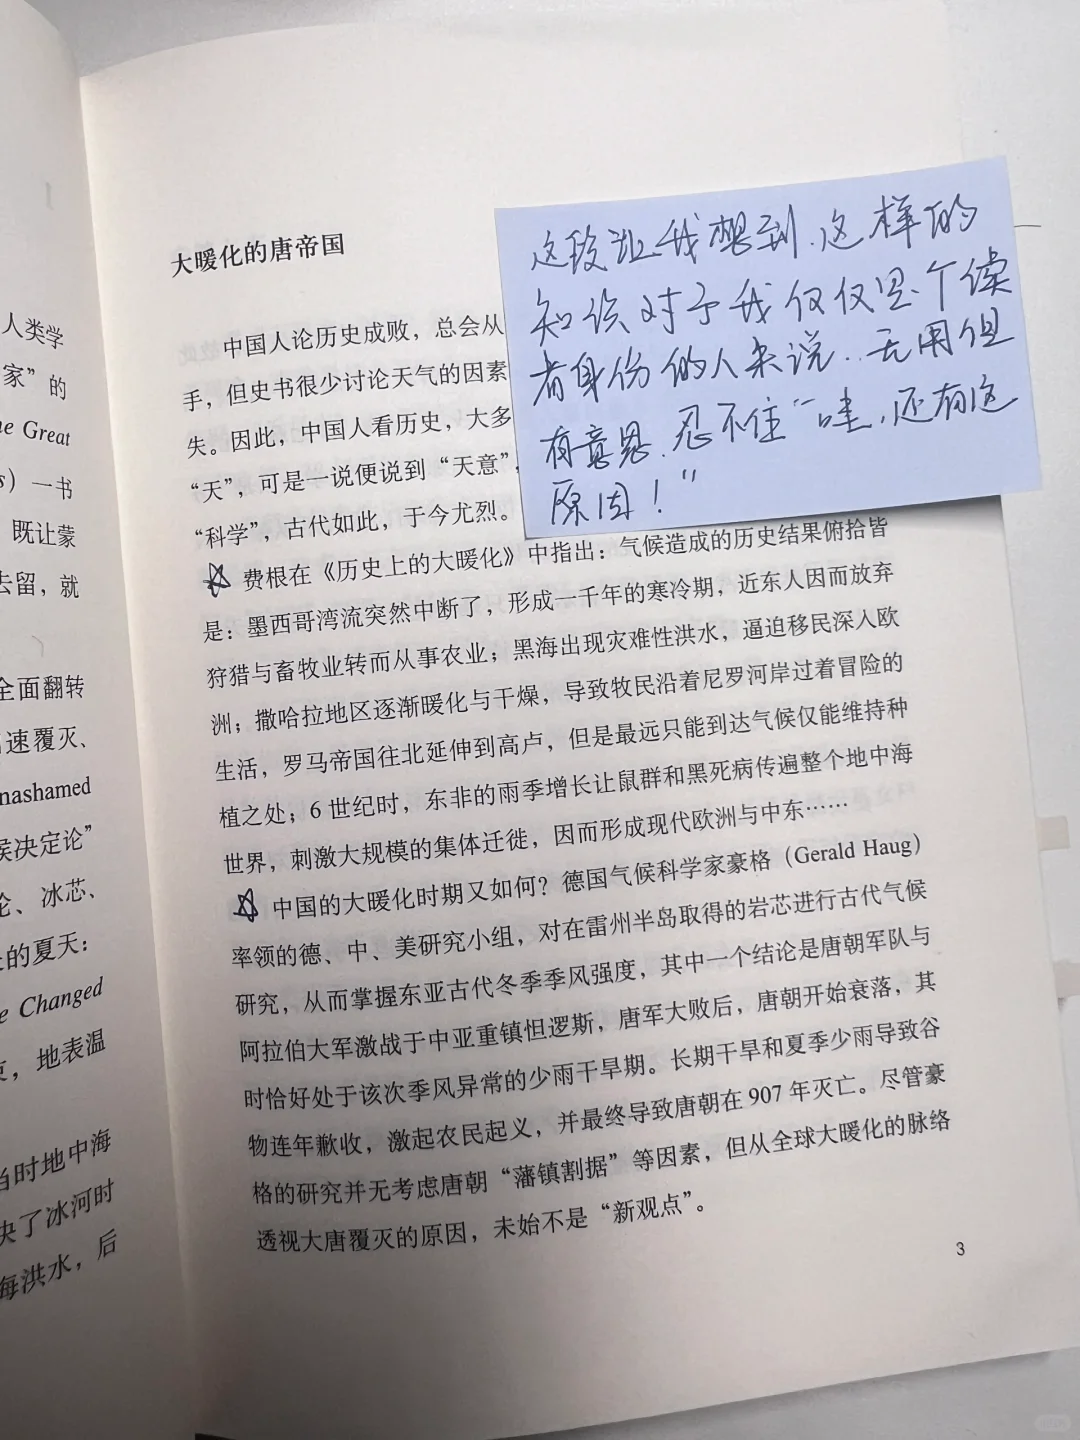 人类学
家”的
he Great
s）一书
既让蒙
去留，就
全面翻转
速覆灭、
nashamed
候决定论”
仑、冰芯、
的夏天：
e Changed
，地表温
当时地中海
决了冰河时
海洪水，后
大暖化的唐帝国
这段让我想到，这样的
知识对于我仅仅是个读
者身份的人来说，无用但
有意思，忍不住“哇，还有这
原因！”
中国人论历史成败，总会从
手，但史书很少讨论天气的因素
失。因此，中国人看历史，大多
“天”，可是一说便说到“天意”，
“科学”，古代如此，于今尤烈。
费根在《历史上的大暖化》中指出：气候造成的历史结果俯拾皆
是：墨西哥湾流突然中断了，形成一千年的寒冷期，近东人因而放弃
狩猎与畜牧业转而从事农业；黑海出现灾难性洪水，逼迫移民深入欧
洲；撒哈拉地区逐渐暖化与干燥，导致牧民沿着尼罗河岸过着冒险的
生活，罗马帝国往北延伸到高卢，但是最远只能到达气候仅能维持种
植之处；6 世纪时，东非的雨季增长让鼠群和黑死病传遍整个地中海
世界，刺激大规模的集体迁徙，因而形成现代欧洲与中东……
中国的大暖化时期又如何？德国气候科学家豪格（Gerald Haug）
率领的德、中、美研究小组，对在雷州半岛取得的岩芯进行古代气候
研究，从而掌握东亚古代冬季季风强度，其中一个结论是唐朝军队与
阿拉伯大军激战于中亚重镇怛逻斯，唐军大败后，唐朝开始衰落，其
时恰好处于该次季风异常的少雨干旱期。长期干旱和夏季少雨导致谷
物连年歉收，激起农民起义，并最终导致唐朝在 907 年灭亡。尽管豪
格的研究并无考虑唐朝“藩镇割据”等因素，但从全球大暖化的脉络
透视大唐覆灭的原因，未始不是“新观点”。
3